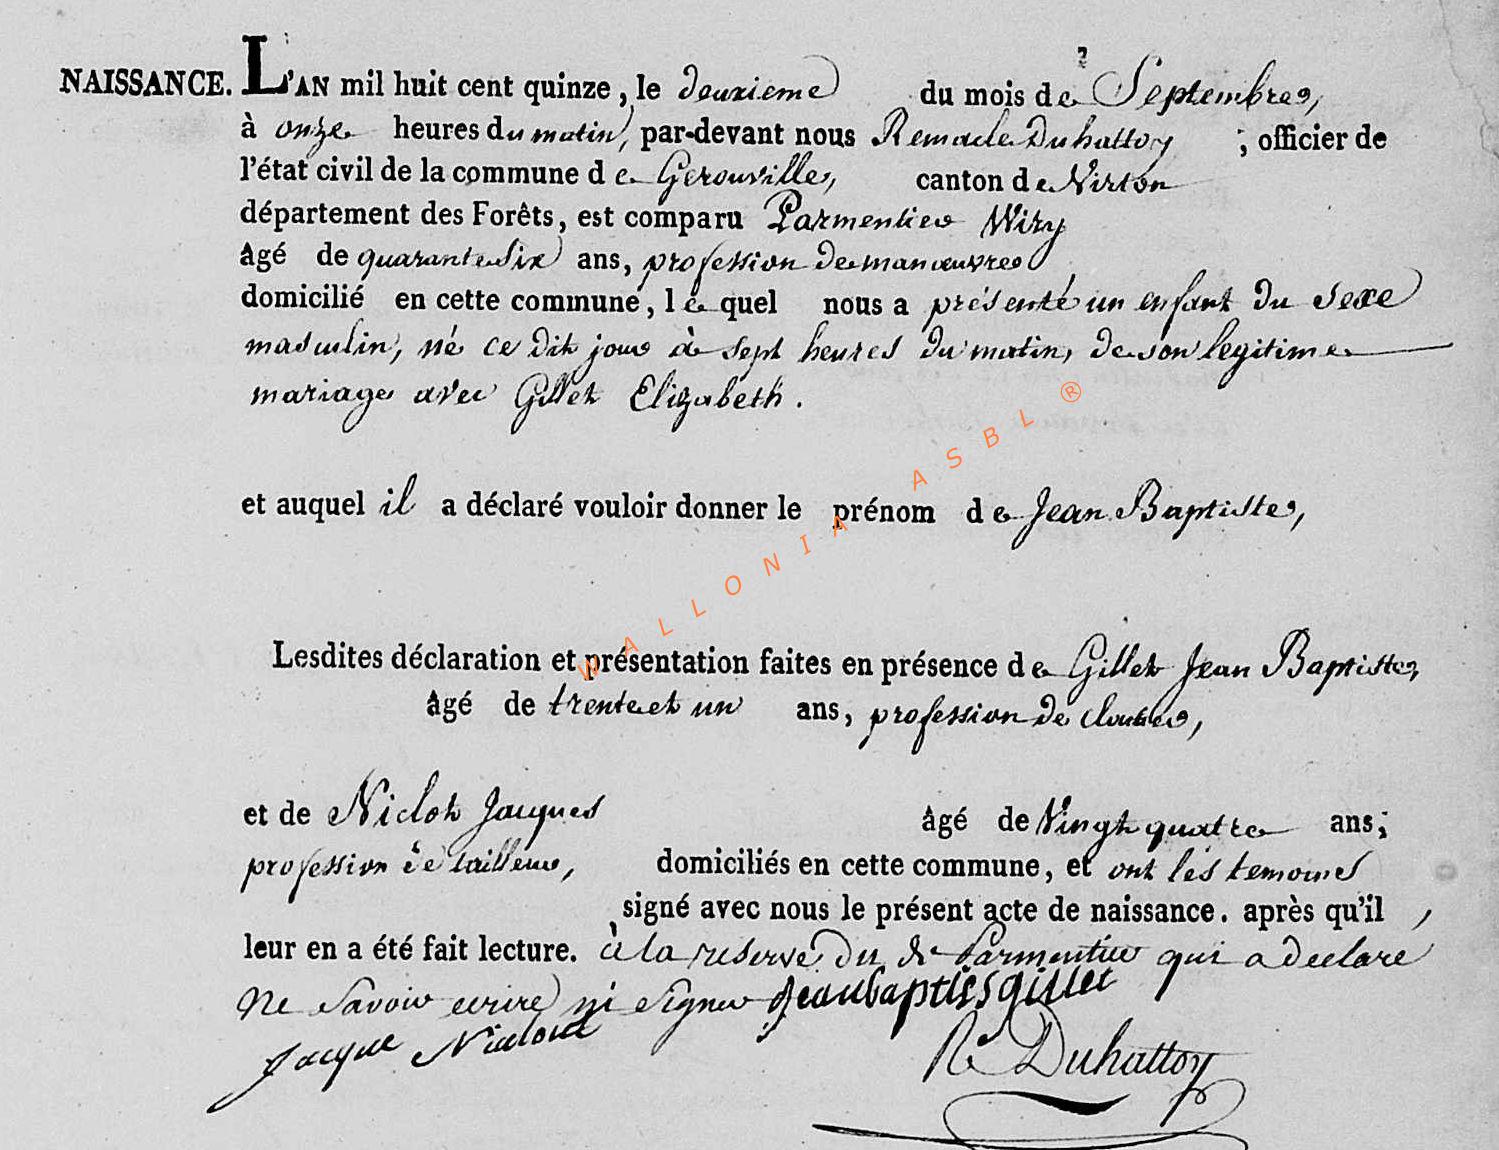 NAISSANCE. L'AN mil huit cent quinze, le deuxieme du mois de Septembre,
à onze heures du matin, par-devant nous Remacle Duhattoy ; officier de
l'état civil de la commune de Gerouville, canton de Virton
département des Forêts, est comparu Parmentier Wiry
âgé de quarante Six ans, profession de manœuvre
domicilié en cette commune, lequel nous a présenté un enfant du sexe
masculin, né ce dit jour à sept heures du matin, de son legitime
mariage avec Gillet Elizabeth.
et auquel il a déclaré vouloir donner le prénom de Jean Baptiste,
Lesdites déclaration et présentation faites en présence de Gillet Jean Baptiste,
âgé de trente et un ans, profession de cloutier,
et de Niclot Jacques âgé de Vingt quatre ans;
profession de tailleur, domiciliés en cette commune, et ont les temoins
signé avec nous le présent acte de naissance. après qu'il
leur en a été fait lecture. à la reserve du dt Parmentier qui a declare
ne savoir ecrire ni signer Jean baptiss gillet
Jacque Niclout
R Duhattoy
WALLONIA ASBL ®